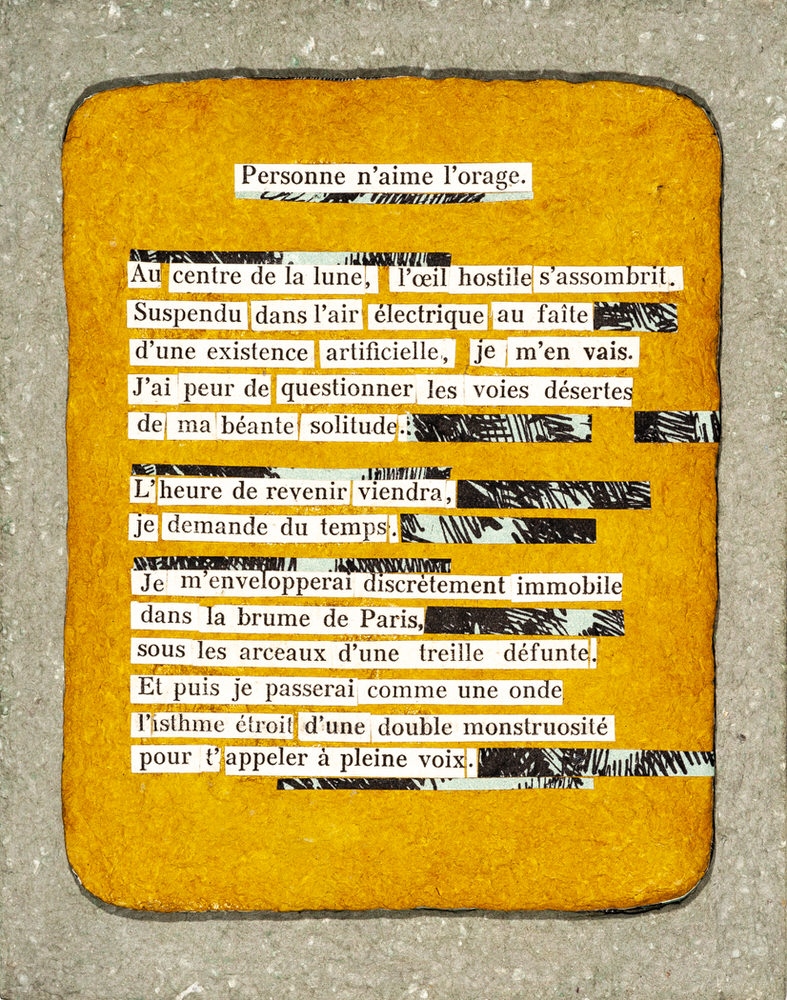 Personne n'aime l'orage.
Au centre de la lune, l'œil hostile s'assombrit.
Suspendu dans l'air électrique au faîte
d'une existence artificielle, je m'en vais.
J'ai peur de questionner les voies désertes
de ma béante solitude.
L'heure de revenir viendra,
je demande du temps.
Je m'envelopperai discrètement immobile
dans la brume de Paris,
sous les arceaux d'une treille défunte.
Et puis je passerai comme une onde
l'isthme étroit d'une double monstruosité
pour t'appeler à pleine voix.